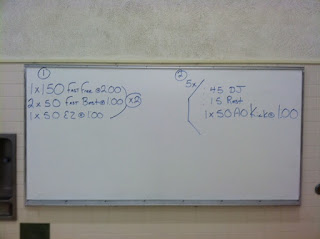 1
1x150 Fast Free @ 2:00
2x50 Fast Best @ 1:00
1x50 EZ @ 1:00
x2
2
5x
:45 DJ
:15 Rest
1x50 AO Kick @ 1:00